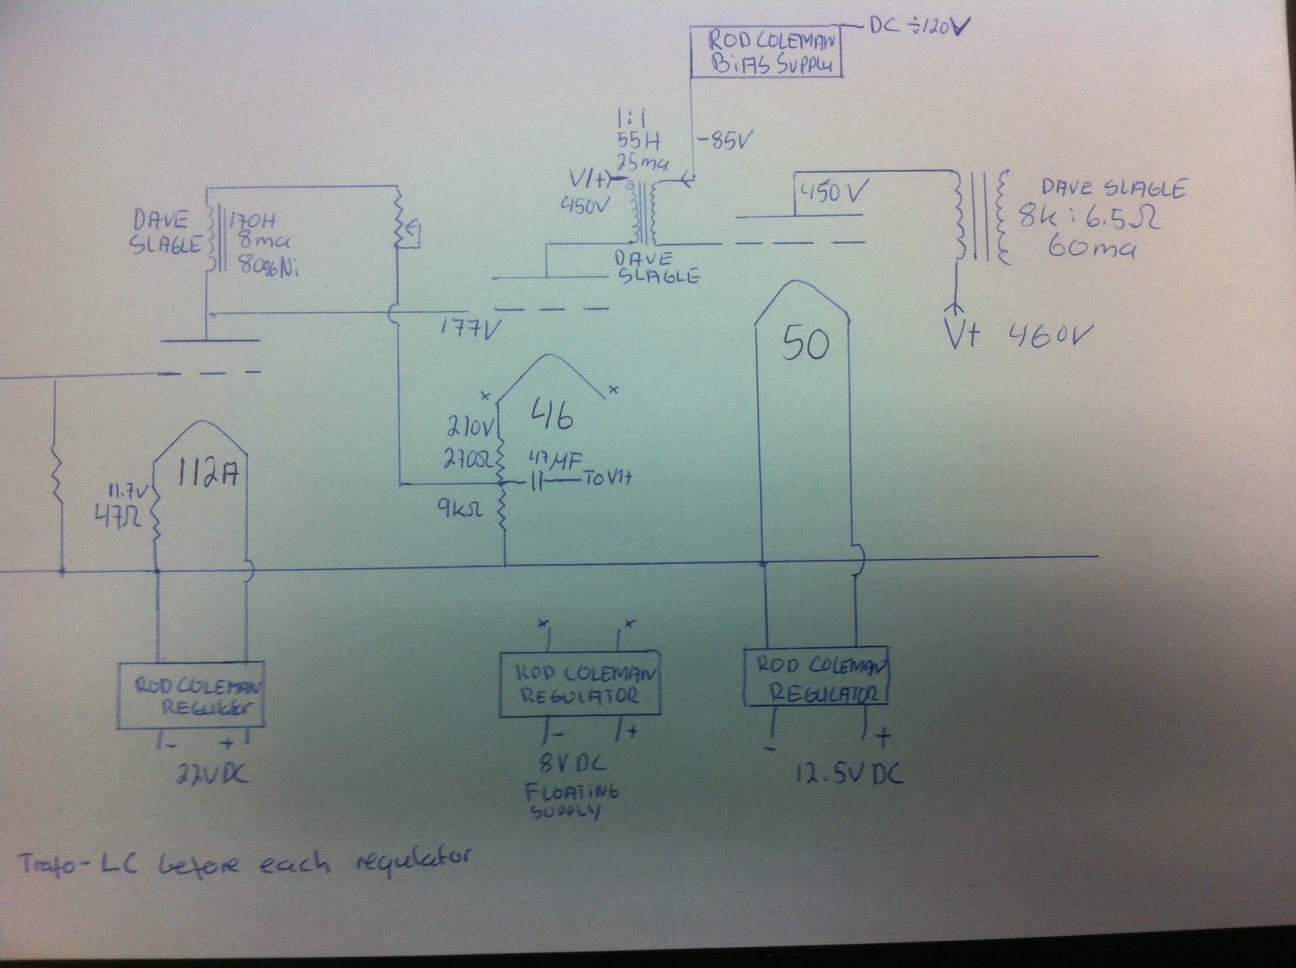 ROD COLEMAN
BiAS SUPPLY
DC ÷120V
1:1
55H
25ma
-85V
V(+)
450V
DAVE
SLAGLE
170H
8ma
80%Ni
DAVE
SLAGLE
450V
DAVE SLAGLE
8k:6.5Ω
60ma
V+ 460V
177V
50
46
210V
270Ω
47MF
TO V1+
9kΩ
112A
11.7V
47Ω
x
x
x
x
ROD COLEMAN
REGULATOR
- +
22VDC
ROD COLEMAN
REGULATOR
- +
8VDC
FLOATING
SUPPLY
ROD COLEMAN
REGULATOR
- +
12.5VDC
Trafo-LC before each regulator